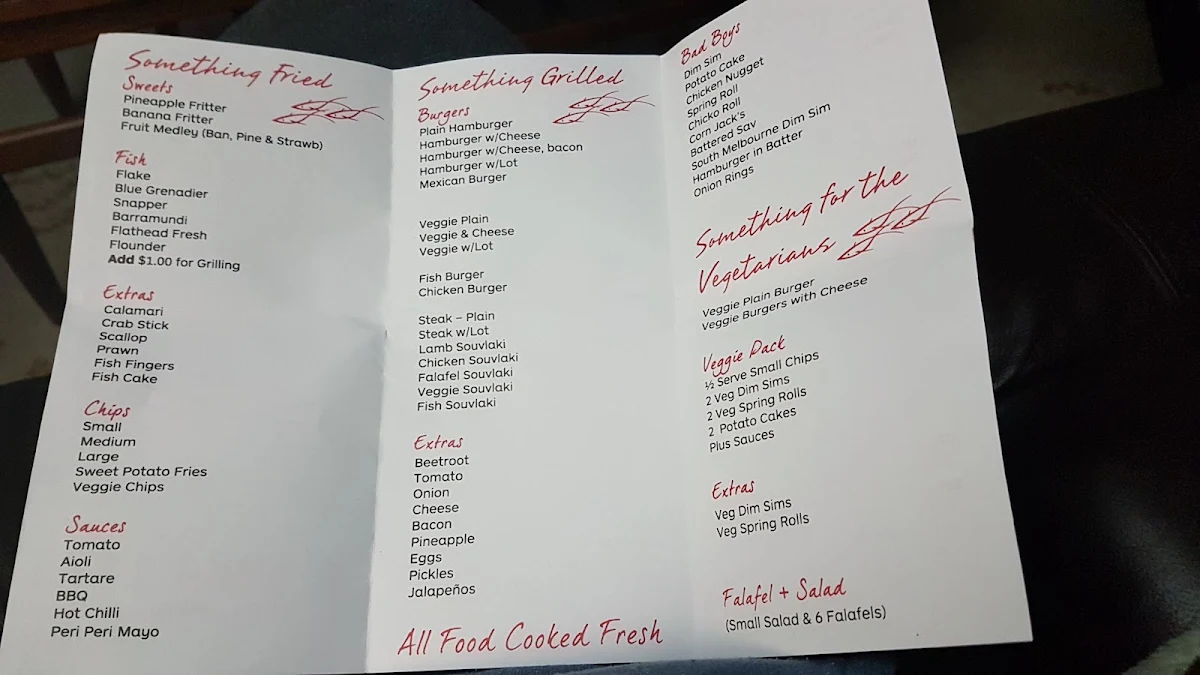 Something Fried
Sweets
Pineapple Fritter
Banana Fritter
Fruit Medley (Ban, Pine & Strawb)
Fish
Flake
Blue Grenadier
Snapper
Barramundi
Flathead Fresh
Flounder
Add $1.00 for Grilling
Extras
Calamari
Crab Stick
Scallop
Prawn
Fish Fingers
Fish Cake
Chips
Small
Medium
Large
Sweet Potato Fries
Veggie Chips
Sauces
Tomato
Aioli
Tartare
BBQ
Hot Chilli
Peri Peri Mayo
Something Grilled
Burgers
Plain Hamburger
Hamburger w/Cheese
Hamburger w/Cheese, bacon
Hamburger w/Lot
Mexican Burger
Veggie Plain
Veggie & Cheese
Veggie w/Lot
Fish Burger
Chicken Burger
Steak – Plain
Steak w/Lot
Lamb Souvlaki
Chicken Souvlaki
Falafel Souvlaki
Veggie Souvlaki
Fish Souvlaki
Extras
Beetroot
Tomato
Onion
Cheese
Bacon
Pineapple
Eggs
Pickles
Jalapeños
All Food Cooked Fresh
Bad Boys
Dim Sim
Potato Cake
Chicken Nugget
Spring Roll
Chicko Roll
Corn Jack's
Battered Sav
South Melbourne Dim Sim
Hamburger in Batter
Onion Rings
Something for the
Vegetarians
Veggie Plain Burger
Veggie Burgers with Cheese
Veggie Pack
½ Serve Small Chips
2 Veg Dim Sims
2 Veg Spring Rolls
2 Potato Cakes
Plus Sauces
Extras
Veg Dim Sims
Veg Spring Rolls
Falafel + Salad
(Small Salad & 6 Falafels)